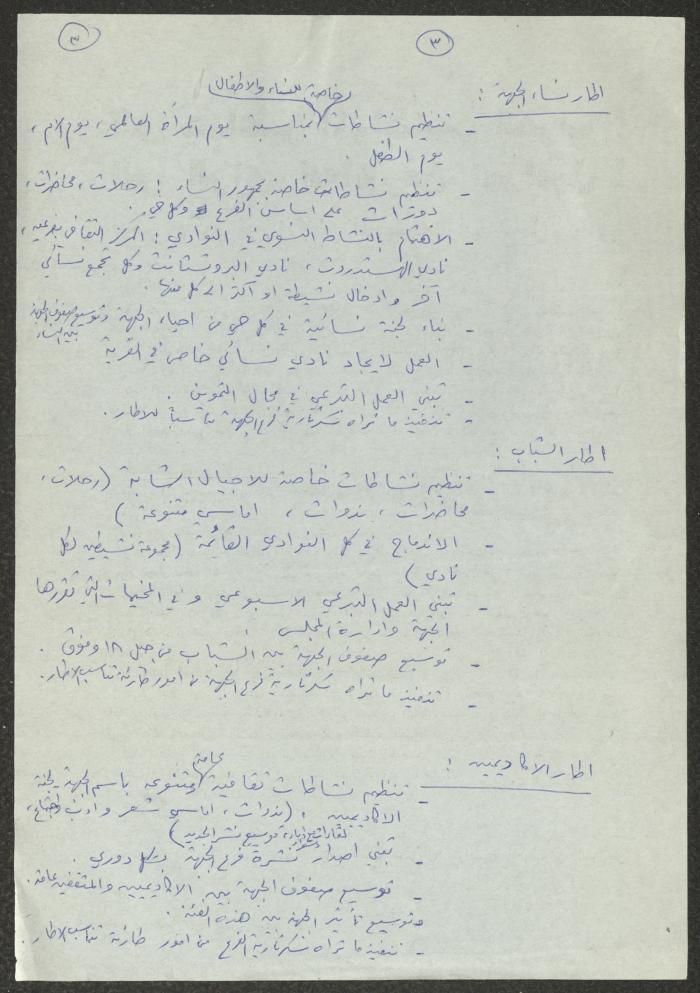 ٣
٣
اطار نساء الجبهة :
خاصة للنساء والاطفال
- تنظيم نشاطات بمناسبة يوم المرأة العالمي ، يوم الام ،
يوم الطفل .
- تنظيم نشاطات خاصة بجمهور النساء : رحلات ، محاضرات ،
دورات على اساس الفرع وكل حي .
- الاهتمام بالنشاط النسوي في النوادي : المركز الثقافي بفرعيه ،
نادي الهستدروت ، نادي البروتستانت وكل تجمع نسائي
آخر وادخال نشيطة او اكثر الى كل منها .
- بناء لجنة نسائية في كل حي من احياء الجبهة وتوسيع صفوف الجبهة
بين النساء
- العمل لايجاد نادي نسائي خاص في القرية
- تبني العمل التبرعي في مجال التموين .
- تنفيذ ما تراه سكرتارية فرع الجبهة مناسباً للاطار .
اطار الشباب :
- تنظيم نشاطات خاصة للاجيال الشابة (رحلات ،
محاضرات ، ندوات ، اماسي متنوعة )
- الاندماج في كل النوادي القائمة (مجموعة نشيطين لكل
نادي)
- تبني العمل التبرعي الاسبوعي وفي المخيمات التي تقررها
الجبهة وادارة المجلس
- توسيع صفوف الجبهة بين الشباب من جيل ١٨ وفوق .
- تنفيذ ما تراه سكرتارية فرع الجبهة من امور طارئة تناسب الاطار .
اطار الاكاديميين :
عامة
- تنظيم نشاطات ثقافية متنوعة باسم الجبهة لجنة
الاكاديميين : (ندوات ، اماسي شعر وادب واجتماع ،
لقاءات مع ادباء توسيع نشر الجديد)
- تبني اصدار نشرة فرع الجبهة بشكل دوري .
- توسيع صفوف الجبهة بين الاكاديميين والمثقفين عامة .
وتوسيع تأثير الجبهة بين هذه الفئة .
- تنفيذ ما تراه سكرتارية الفرع من امور طارئة تناسب الاطار .